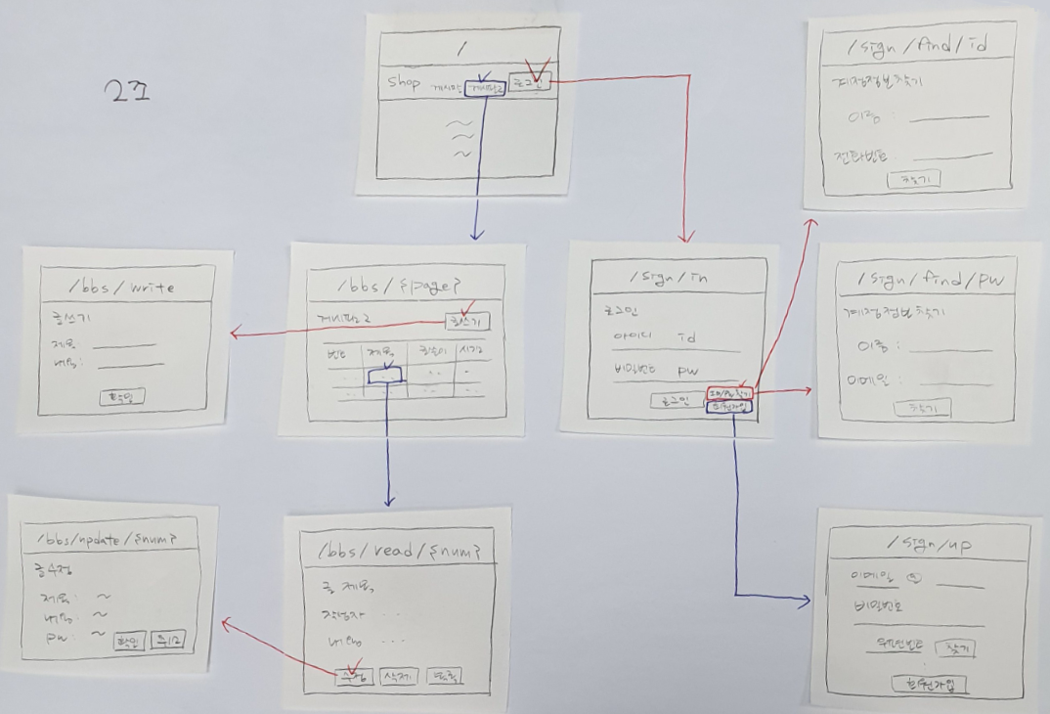 2조
/
Shop 게시판 게시판2 로그인
/sign/find/id
계정정보 찾기
이름 :
전화번호 :
찾기
/bbs/write
글쓰기
제목 :
내용 :
확인
/bbs/{page}
게시판2 글쓰기
번호 제목 글쓴이 시간
/sign/in
로그인
아이디 id
비밀번호 pw
ID/PW찾기
로그인 회원가입
/sign/find/pw
계정정보 찾기
이름 :
이메일 :
찾기
/bbs/update/{num}
글수정
제목 : ~
내용 : ~
pw : ~
확인 취소
/bbs/read/{num}
글 제목
작성자 ...
내용 ...
수정 삭제 목록
/sign/up
이메일 @
비밀번호
찾기
회원가입